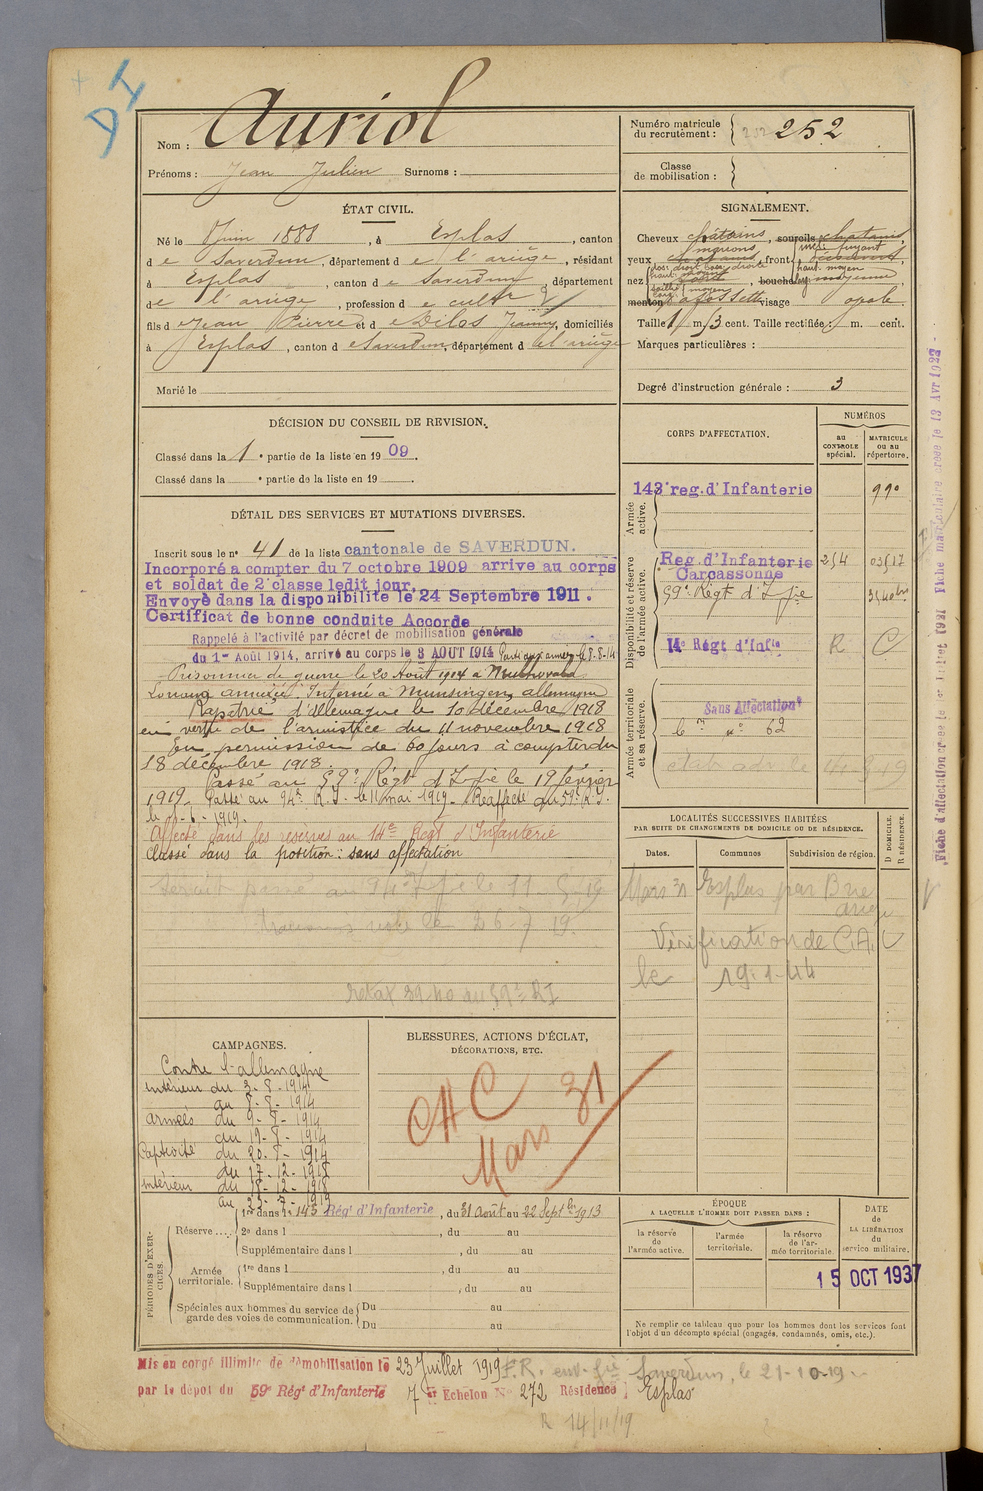 D I
Nom : Auriol
Prénoms : Jean Julien Surnoms :
Numéro matricule du recrutement : 252 252
Classe de mobilisation :
ÉTAT CIVIL.
Né le 8 Juin 1888, à Esplas, canton
de Saverdun, département de l'ariège, résidant
à Esplas, canton de Saverdun, département
de l'ariège, profession de cultr
fils de Jean Pierre et de Dilos Jeanne, domiciliés
à Esplas, canton de Saverdun, département de l'ariège
Marié le
SIGNALEMENT.
Cheveux châtains, sourcils chatains,
yeux marrons, front incl. fuyant haut. moyen
nez dos: droit base: droite
bouche moyenne
menton à fossette visage ovale
Taille 1 m. /3 cent. Taille rectifiée : m. cent.
Marques particulières :
Degré d'instruction générale : 3
DÉCISION DU CONSEIL DE REVISION.
Classé dans la 1e partie de la liste en 1909.
Classé dans la e partie de la liste en 19 .
DÉTAIL DES SERVICES ET MUTATIONS DIVERSES.
Inscrit sous le n° 41 de la liste cantonale de SAVERDUN.
Incorporé a compter du 7 octobre 1909 arrive au corps
et soldat de 2e classe ledit jour.
Envoyé dans la disponibilite le 24 Septembre 1911.
Certificat de bonne conduite Accorde
Rappelé à l'activité par décret de mobilisation générale
du 1er Août 1914, arrivé au corps le 3 AOUT 1914 Parti aux armées le 8-8-14
Prisonnier de guerre le 20 Août 1914 à
Lorraine annexée. Interné à Munsingen allemagne
Rapatrié d'allemagne le 10 décembre 1918
en vertu de l'armistice du 11 novembre 1918
En permission de 60 jours à compter du
18 décembre 1918.
Passé au 59e Régt d'Infie le 19 février
1919. Passé au 94e R.I. le 11 mai 1919. Réaffecté au 59e R.I.
Affecté dans les réserves au 14e Regt d'Infanterie
Classé dans la position : sans affectation
Serait passé au 94e Infie le 11-5-19
le 26-7 19.
au 59e RI
CORPS D'AFFECTATION.
NUMÉROS
au CONTROLE spécial.
MATRICULE ou au répertoire.
Armée active.
143e reg. d'Infanterie 990
Disponibilité et réserve de l'armée active.
Reg. d'Infanterie Carcassonne 254 03517
59e Régt d'Infie
14e Régt d'Infie R C
Armée territoriale et sa réserve.
Sans Affectation
le n° 62
LOCALITÉS SUCCESSIVES HABITÉES
PAR SUITE DE CHANGEMENTS DE DOMICILE OU DE RÉSIDENCE.
Dates. Communes Subdivision de région. D DOMICILE. R RÉSIDENCE.
Mars 31 Esplas par Brie
ariège
Vérification de C.A.
le 19-1-44
CAMPAGNES.
Contre l'allemagne
intérieur du 3-8-1914
au 8-8-1914
armées du 9-8-1914
au 19-8-1914
Captivité du 20-8-1914
au 17-12-1918
intérieur du 18-12-1918
au 23-7-1919
BLESSURES, ACTIONS D'ÉCLAT,
DÉCORATIONS, ETC.
CHC
Mars 31
PÉRIODES D'EXERCICES.
Réserve....
1re dans le 143 Régt d'Infanterie, du 31 Août au 22 Septbre 1913
2e dans l , du au
Supplémentaire dans l , du au
Armée territoriale.
1re dans l , du au
Supplémentaire dans l , du au
Spéciales aux hommes du service de garde des voies de communication.
Du au
Du au
ÉPOQUE
A LAQUELLE L'HOMME DOIT PASSER DANS :
la réserve de l'armée active.
l'armée territoriale.
la réserve de l'armée territoriale.
DATE de LA LIBÉRATION du service militaire.
15 OCT 1937
Ne remplir ce tableau que pour les hommes dont les services font
l'objet d'un décompte spécial (engagés, condamnés, omis, etc.).
Mis en congé illimité de démobilisation le 23 Juillet 1919 F.R. env. Gie Saverdun, le 21-10-19
par le dépot du 59e Régt d'Infanterie 7e Echelon N° 272 Résidence Esplas
R 14/11/19